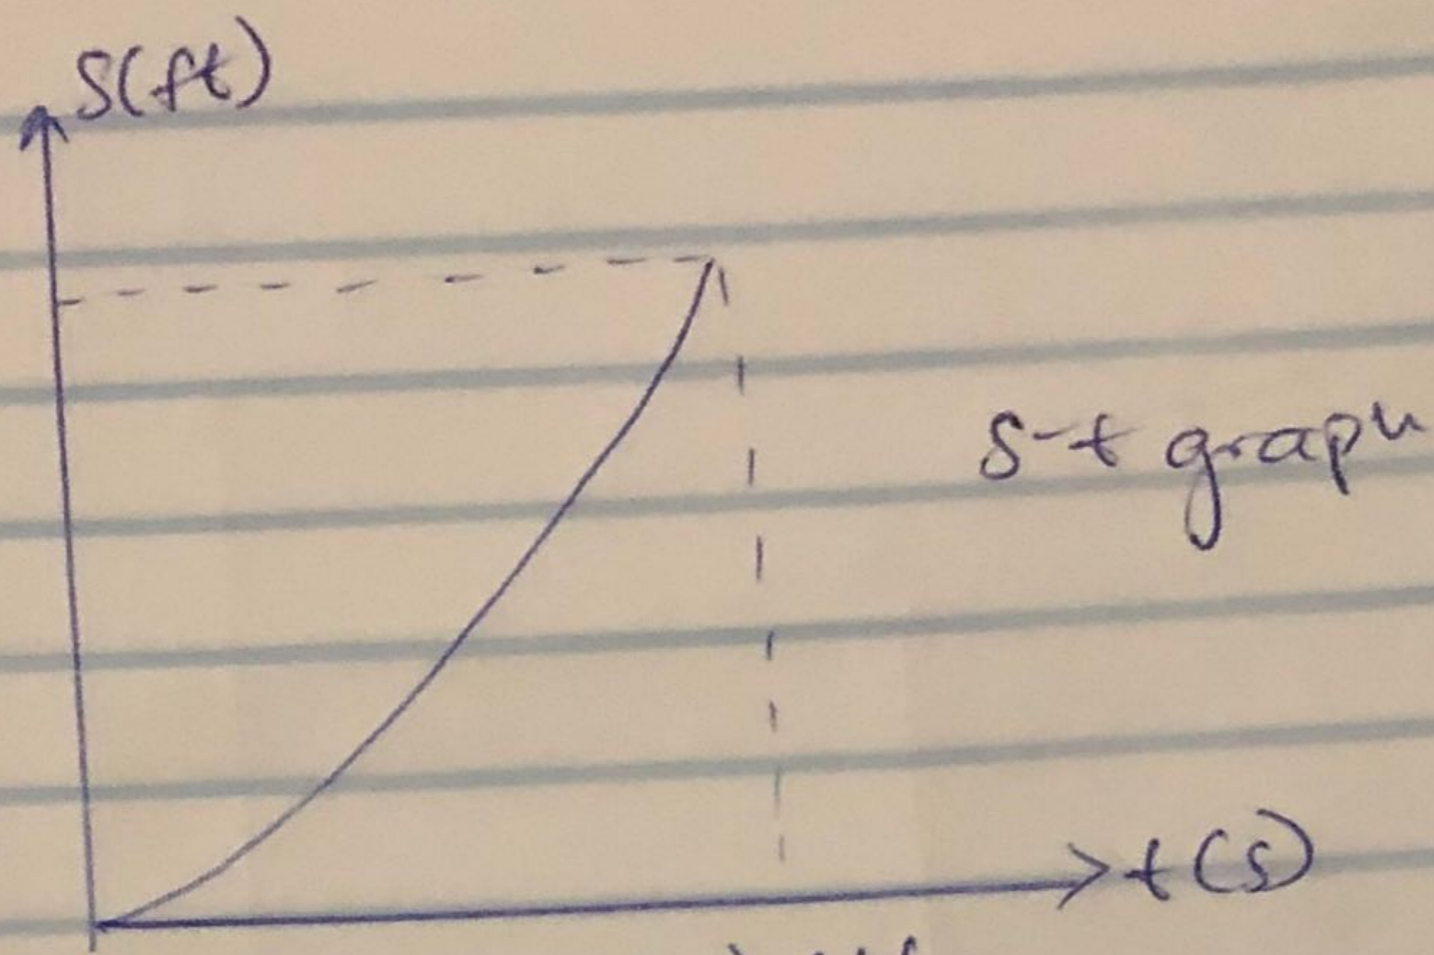 S(ft)
s-t graph
t(s)